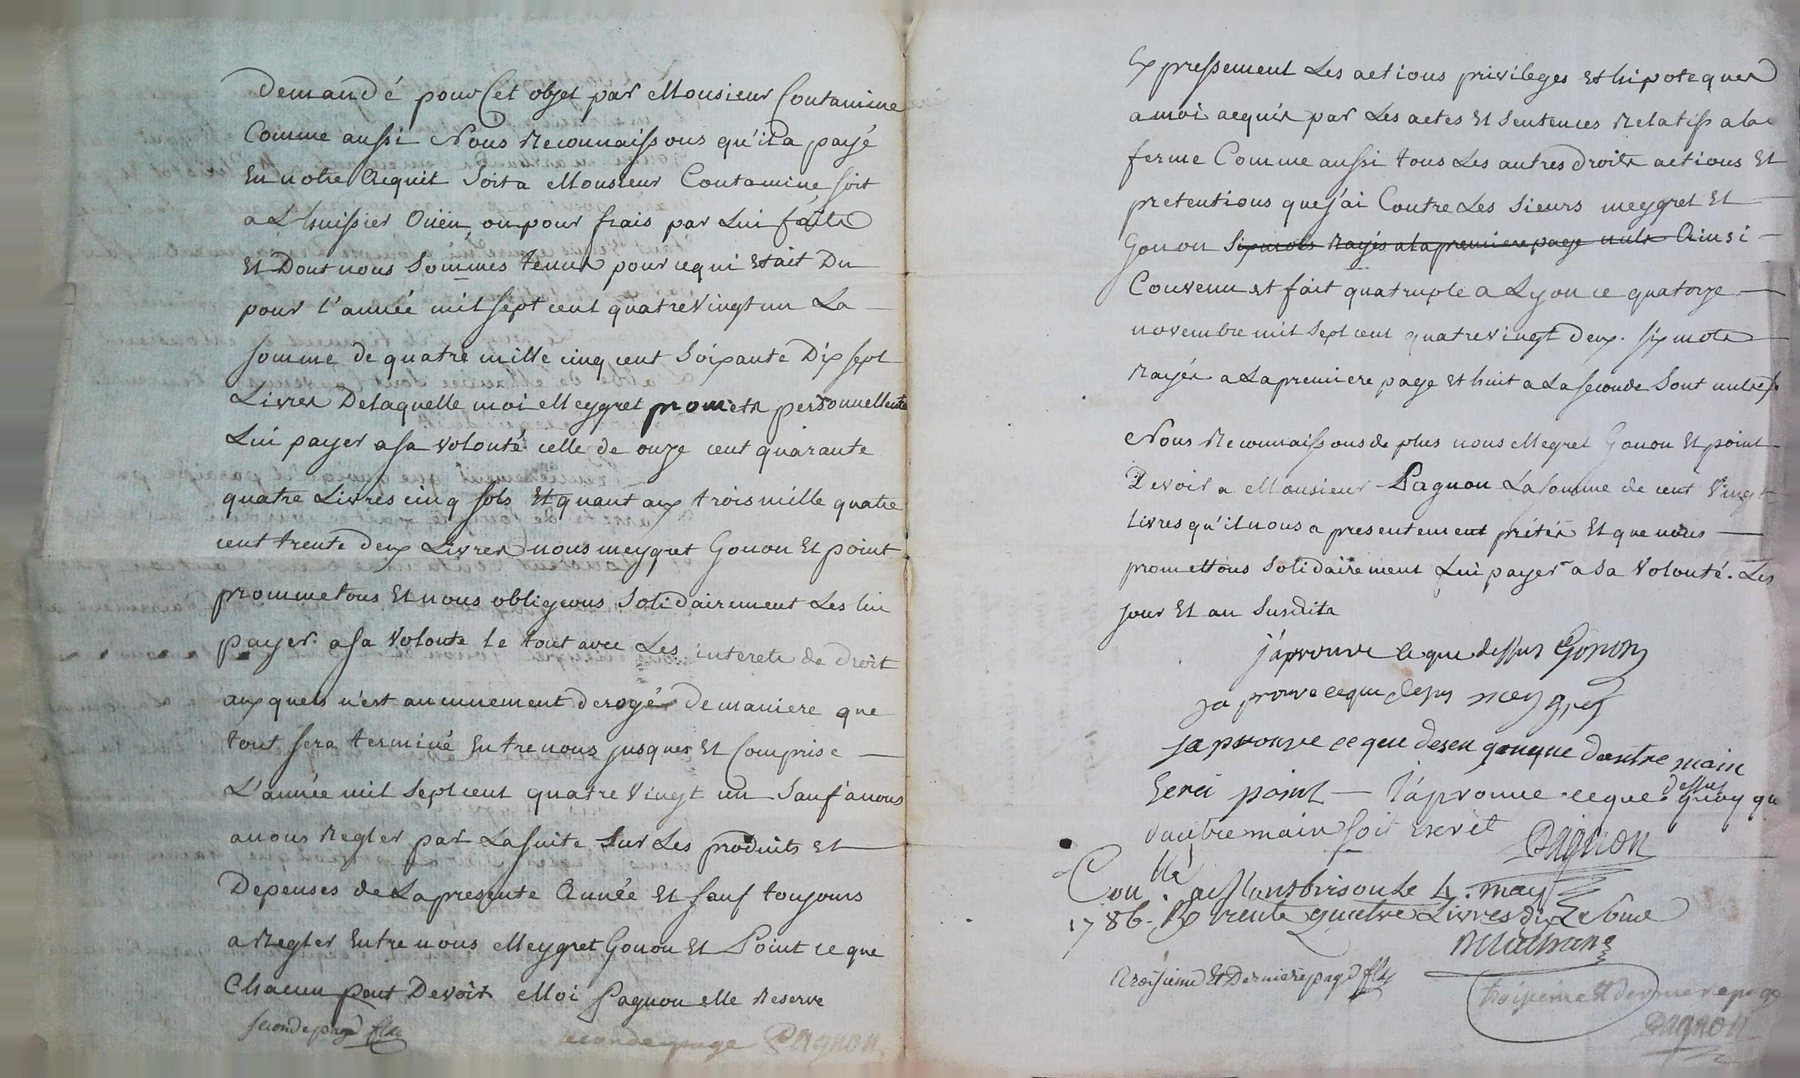 Demandé pour Cet objet par Monsieur Contamine
Comme aussi Nous Reconnaissons qu'il a payé
En notre Acquit Soit a Monsieur Contamine soit
a L'huissier Oüen, ou pour frais par Lui faits
Et Dont nous Sommes tenus pour ce qui Etait Du
pour l'année mil sept cent quatre Vingt un La
Somme de quatre mille cinq cent Soixante Dix sept
Livres De laquelle moi Meygret promets personnellemt
Lui payer a sa volonté celle de onze cent quarante
quatre Livres cinq sols Et quant aux trois mille quatre
cent trente deux Livres nous meygret Gonon Et point
prommetons Et nous obligeons Solidairement Les lui
payer a sa Volonté le tout avec Les interets de Droit
auxquels n'est aucunement derogé De maniere que
tout sera terminé Entre nous jusques Et Comprise
L'année mil Sept cent quatre Vingt un Sauf a nous
a nous Regler par La suite Sur Les produits Et
Depenses de La presente Année Et sauf toujours
a Regler Entre nous Meygret Gonon Et Point ce que
Chacun peut Devoir Moi Pagnon Me Reserve
seconde page
seconde page Pagnon
Expressement Les actions privileges Et hipoteques
a moi acquis par Les actes Et Sentences Relatifs a la
ferme Comme aussi tous Les autres droits actions Et
pretentions que j'ai Contre Les Sieurs meygret Et
Gonon Six mots Rayés a la premiere page nuls Ainsi
Convenu et fait quatruple a Lyon ce quatorze
novembre mil Sept cent quatre vingt deux. six mots
Rayés a La premiere page Et huit a La seconde Sont nuls
Nous Reconnaissons de plus nous Megret Gonon Et point
Devoir a Monsieur Pagnon La somme de cent Vingt
Livres qu'il nous a presentement prétés Et que nous
promettons Solidairement Lui payer a Sa Volonté. Les
jour Et an Susdits
j'aprouve ce que dessus Gonon
ja prouve ceque desus meygret
ja prouve ce que deseu quouque dautre main
Serei point — J'aprouve ce que dessus quoy qu
d'autre main soit Escrit Pagnon
Conllé a Montbrison Le 4. may
1786. R trente quatre Livres dix Ls Sous
troisieme Et Derniere page
troisieme Et derniere page
Pagnon